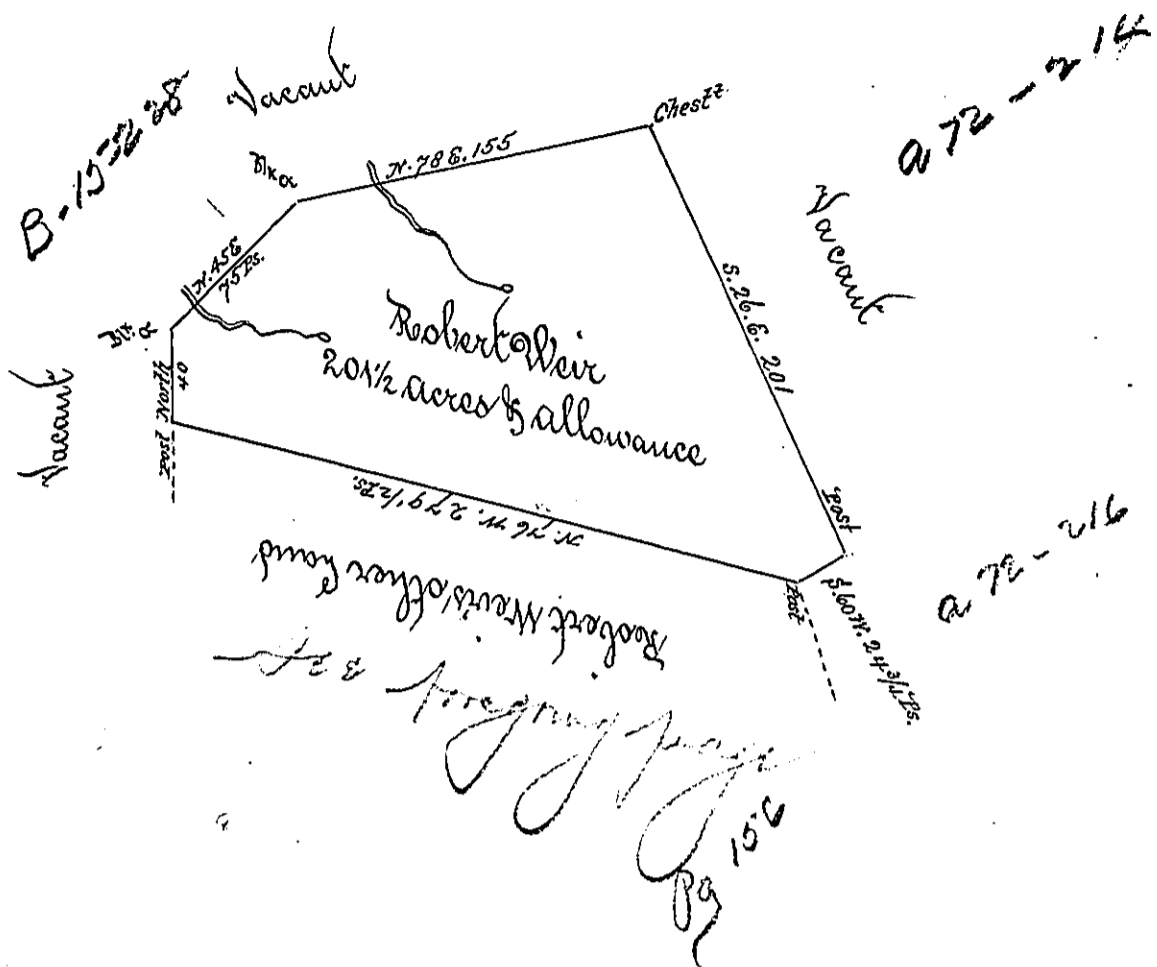 B-15
Vacant
a 72 - 214
Chestt
Blk o
N. 78 E. 155
N. 45 E
75 Ps.
Vacant
S. 26. E. 201
Blk. o
Robert Weir
201 1/2 acres & allowance
Vacant
North
40
Post
N. 76 W. 279 1/2 Ps.
Post
Post
S. 60 W. 24 3/4 Ps.
a 72 - 216
Robert Weirs other Land
foregoing page
Pg 156